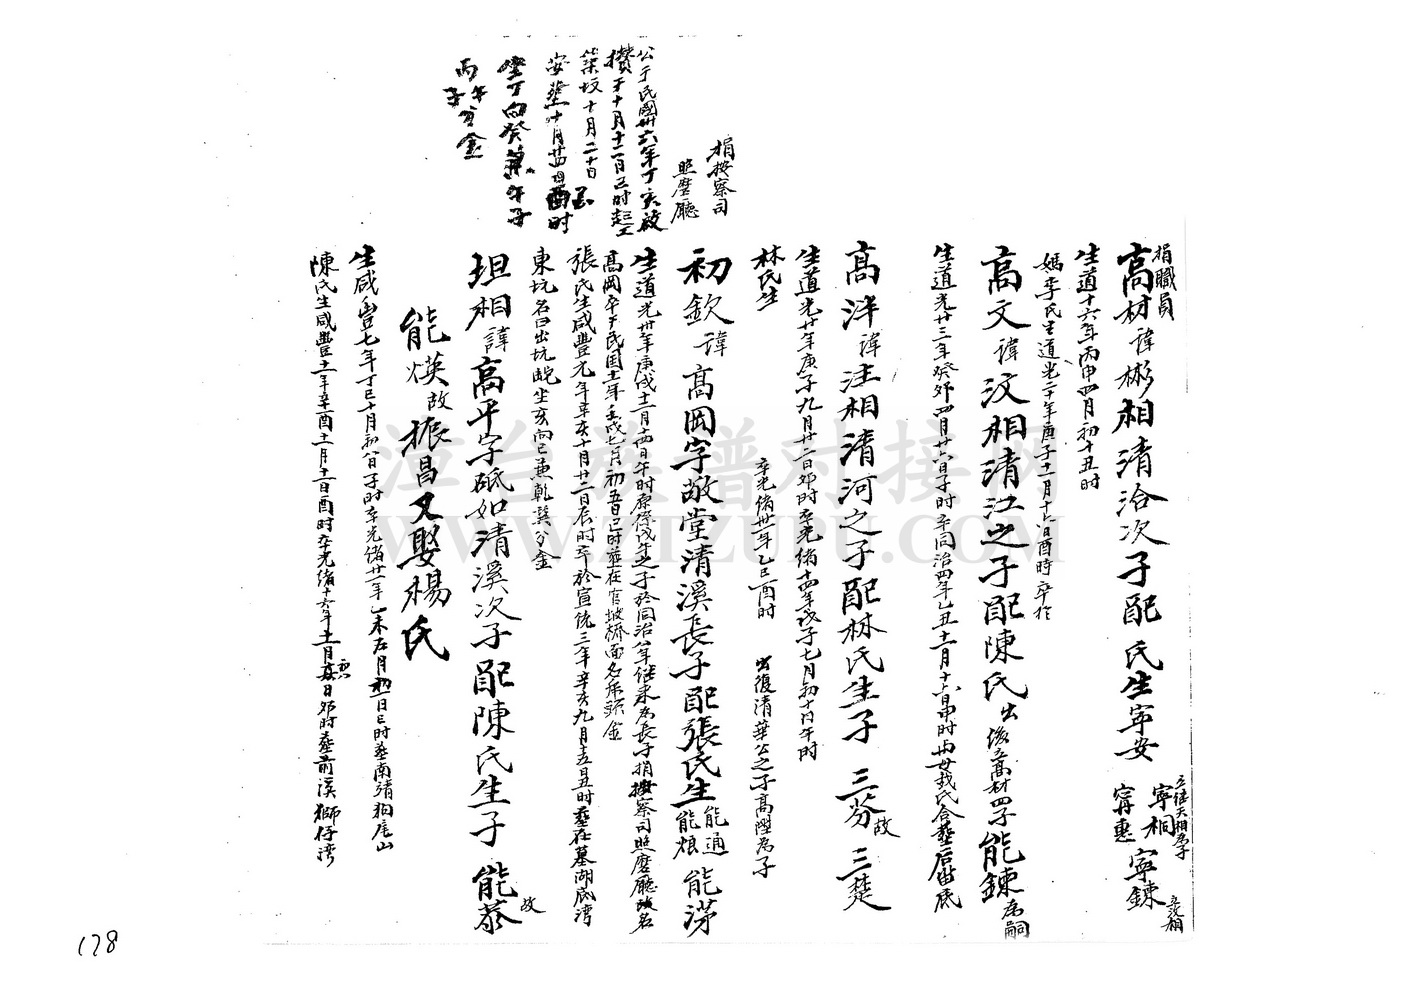 捐職員
高材諱彬相清洽次子配 氏生寧安 寧桐 寧惠 寧鍊
生道十六年丙申四月初十丑時
媽李氏生道光二十年庚子十一月十六日酉時卒於
高文諱汶相清江之子配陳氏出後立高材四子能鍊為嗣
生道光廿三年癸卯四月廿六日子時卒同治四年乙丑十二月十六日申時
高洋諱注相清河之子配林氏生子 三芬故 三楚
生道光廿年庚子九月廿二日卯時卒光緒十四年戊子七月初十日午時
林氏生 卒光緒卅一年乙巳酉時 出復清華公之子高陞為子
捐按察司
照磨廳
初欽諱高岡字敬堂清溪長子配張氏生能通 能烺 能澇
生道光卅年庚戌十二月十四日午時原係戊午之子於同治八年繼來為長子捐按察司照磨廳改名
高岡卒于民国十一年壬戌七月初五日巳時葬在官坡桥面名
張氏生咸豐元年辛亥十月廿二日辰時卒於宣統三年辛亥九月十五日丑時葬在墓湖底湾
東坑名曰出坑 坐亥向巳兼乾巽分金
公于民國卅六年丁亥啟
攢于十月十二日巳时起工
築坟十月二十日
安葬十月廿四日酉时
坐丁向癸兼午子
丙午
丙子分金
坦相諱高平字砥如清溪次子配陳氏生子 能恭故
能烘故 振昌又娶楊氏
生咸豐七年丁巳十月初八日子時卒光緒廿一年乙未五月初一日巳時葬南靖狗尾山
陳氏生咸豐十一年辛酉十二月十二日酉時卒光緒十六年十二月初六日卯時葬前溪獅仔湾
漳台族谱对接网
WWW.ZTZUPU.COM
178